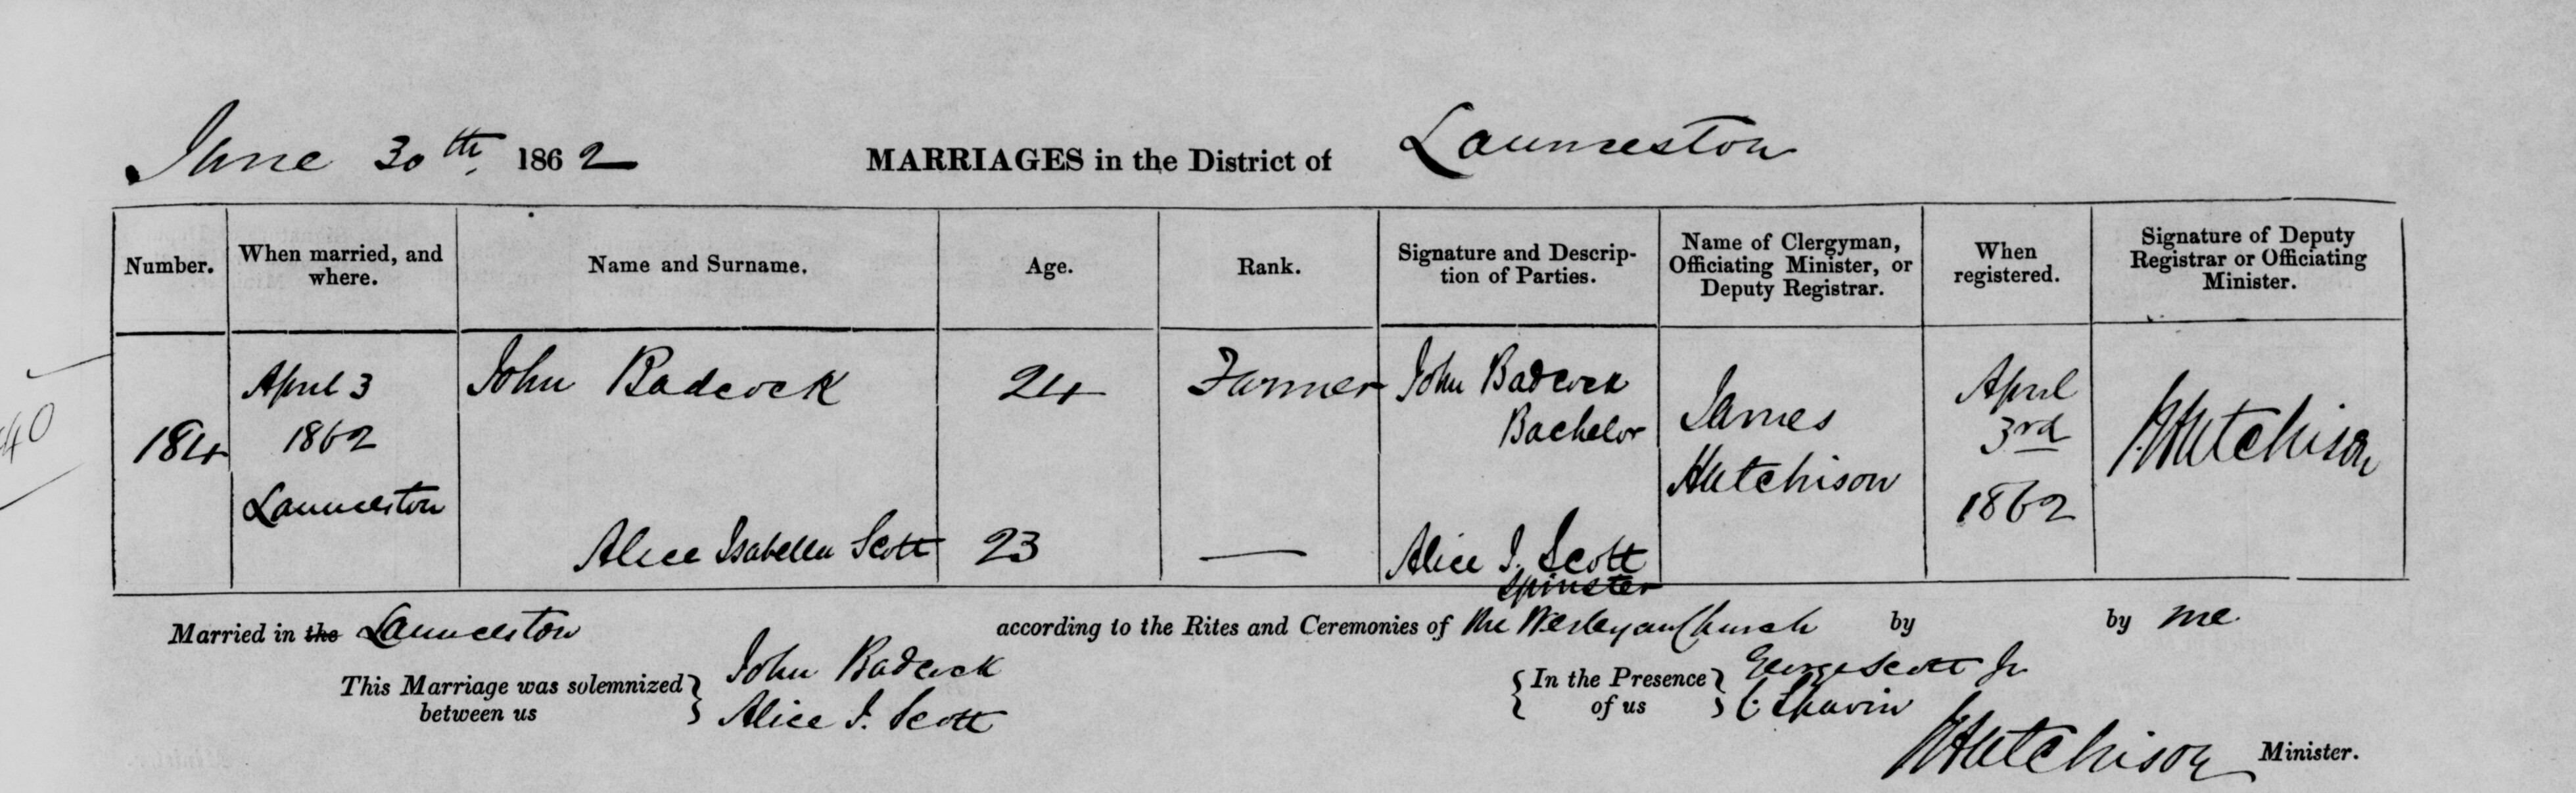 June 30th, 1862 MARRIAGES in the District of Launceston
Number. When married, and where. Name and Surname. Age. Rank. Signature and Description of Parties. Name of Clergyman, Officiating Minister, or Deputy Registrar. When registered. Signature of Deputy Registrar or Officiating Minister.
40
184
April 3
1862
Launceston
John Badcock 24 Farmer John Badcock
Bachelor
Alice Isabella Scott 23 — Alice I. Scott
Spinster
James
Hutchison
April
3rd
1862
J Hutchison
Married in the Launceston according to the Rites and Ceremonies of the Wesleyan Church by by me
This Marriage was solemnized between us } John Badcock
Alice I. Scott
{ In the Presence of us } George Scott Jr
C
J Hutchison Minister.